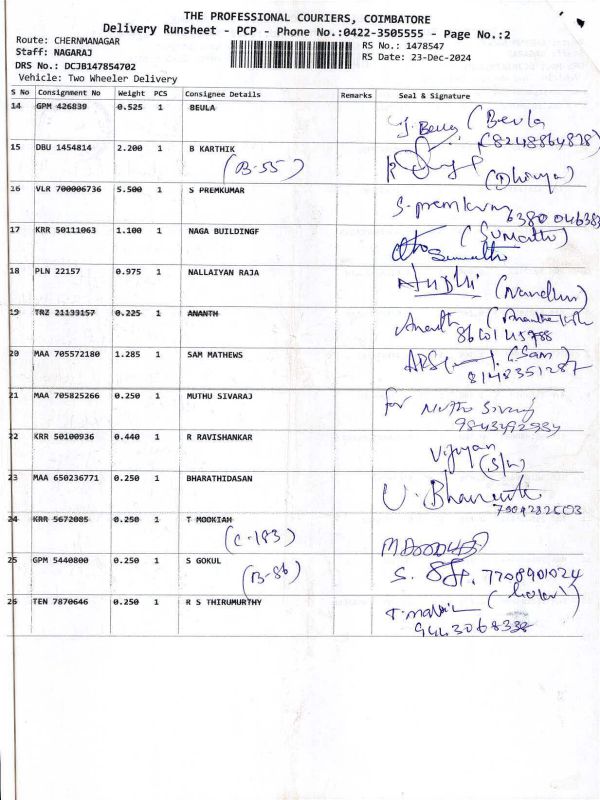 THE PROFESSIONAL COURIERS, COIMBATORE
Delivery Runsheet - PCP - Phone No.:0422-3505555 - Page No.:2
Route: CHERNMANAGAR
Staff: NAGARAJ
RS No.: 1478547
DRS No.: DCJB147854702
RS Date: 23-Dec-2024
Vehicle: Two Wheeler Delivery
S No Consignment No Weight PCS Consignee Details Remarks Seal & Signature
14 GPM 426839 0.525 1 BEULA (Beula
(8248864878)
15 DBU 1454814 2.200 1 B KARTHIK
(B-55) (Dhivya)
16 VLR 700006736 5.500 1 S PREMKUMAR S. premkumar
17 KRR 50111063 1.100 1 NAGA BUILDINGF (Sumathi)
Sumathi
18 PLN 22157 0.975 1 NALLAIYAN RAJA
19 TRZ 21133157 0.225 1 ANANTH Ananth
20 MAA 705572180 1.285 1 SAM MATHEWS (Sam)
8148351287
21 MAA 705825266 0.250 1 MUTHU SIVARAJ for Muthu Sivaraj
9843492934
22 KRR 50100936 0.440 1 R RAVISHANKAR Vijayan
(S/W)
23 MAA 650236771 0.250 1 BHARATHIDASAN
24 KRR 5672085 0.250 1 T MOOKIAM
(C-183)
25 GPM 5440800 0.250 1 S GOKUL 7708901024
(B-86)
26 TEN 7870646 0.250 1 R S THIRUMURTHY
9443068338